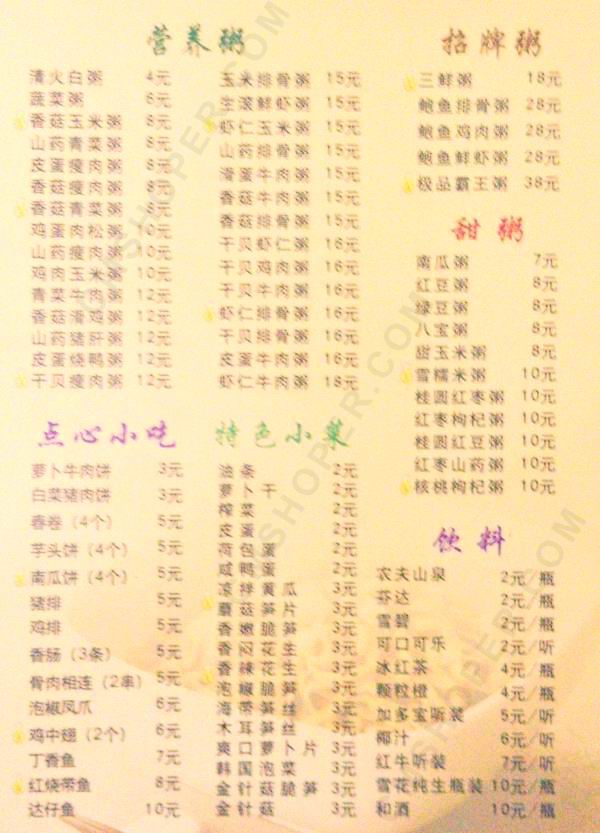 营养粥
清火白粥 4元
蔬菜粥 6元
香菇玉米粥 8元
山药青菜粥 8元
皮蛋瘦肉粥 8元
香菇瘦肉粥 8元
香菇青菜粥 8元
鸡蛋肉松粥 10元
山药瘦肉粥 10元
鸡肉玉米粥 10元
青菜牛肉粥 12元
香菇滑鸡粥 12元
山药猪肝粥 12元
皮蛋烧鸭粥 12元
干贝瘦肉粥 12元
玉米排骨粥 15元
生滚鲜虾粥 15元
虾仁玉米粥 15元
山药排骨粥 15元
滑蛋牛肉粥 15元
香菇牛肉粥 15元
香菇排骨粥 15元
干贝虾仁粥 16元
干贝鸡肉粥 16元
干贝牛肉粥 16元
虾仁排骨粥 16元
干贝排骨粥 16元
皮蛋牛肉粥 16元
虾仁牛肉粥 18元
招牌粥
三鲜粥 18元
鲍鱼排骨粥 28元
鲍鱼鸡肉粥 28元
鲍鱼鲜虾粥 28元
极品霸王粥 38元
甜粥
南瓜粥 7元
红豆粥 8元
绿豆粥 8元
八宝粥 8元
甜玉米粥 8元
雪糯米粥 10元
桂圆红枣粥 10元
红枣枸杞粥 10元
桂圆红豆粥 10元
红枣山药粥 10元
核桃枸杞粥 10元
点心小吃
萝卜牛肉饼 3元
白菜猪肉饼 3元
春卷（4个） 5元
芋头饼（4个） 5元
南瓜饼（4个） 5元
猪排 5元
鸡排 5元
香肠（3条） 5元
骨肉相连（2串） 5元
泡椒凤爪 6元
鸡中翅（2个） 6元
丁香鱼 7元
红烧带鱼 8元
达仔鱼 10元
特色小菜
油条 2元
萝卜干 2元
榨菜 2元
皮蛋 2元
荷包蛋 2元
咸鸭蛋 2元
凉拌黄瓜 3元
蘑菇笋片 3元
香嫩脆笋 3元
香闷花生 3元
香辣花生 3元
泡椒脆笋 3元
海带笋丝 3元
木耳笋丝 3元
爽口萝卜片 3元
韩国泡菜 3元
金针菇脆笋 3元
金针菇 3元
饮料
农夫山泉 2元/瓶
芬达 2元/瓶
雪碧 2元/瓶
可口可乐 2元/听
冰红茶 4元/瓶
颗粒橙 4元/瓶
加多宝听装 5元/听
椰汁 6元/听
红牛听装 7元/听
雪花纯生瓶装 10元/瓶
和酒 10元/瓶